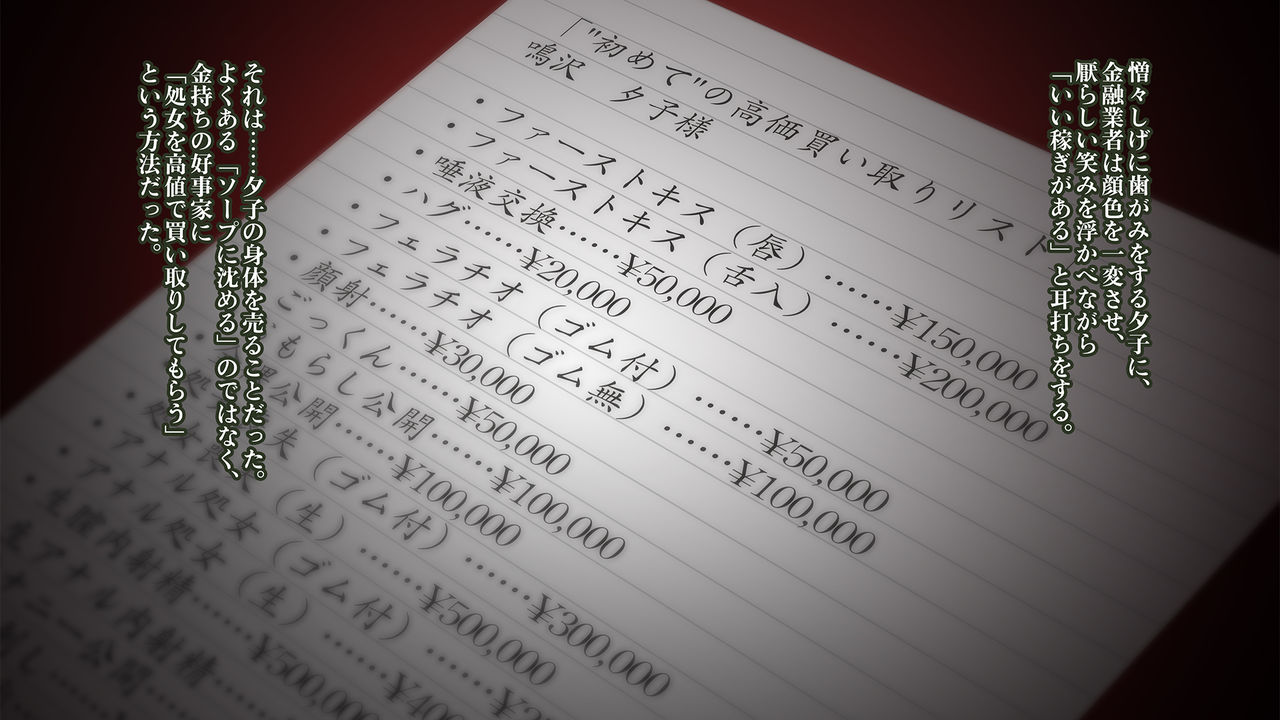 憎々しげに歯がみをする夕子に、
金融業者は顔色を一変させ、
厭らしい笑みを浮かべながら
「いい稼ぎがある」と耳打ちをする。
「"初めて"の高価買い取りリスト
鳴沢 夕子様
・ファーストキス（唇）……¥150,000
・ファーストキス（舌入）……¥200,000
・唾液交換……¥50,000
・ハグ……¥20,000
・フェラチオ（ゴム付）……¥50,000
・フェラチオ（ゴム無）……¥100,000
・顔射……¥30,000
ごっくん……¥50,000
もらし公開……¥100,000
公開……¥100,000
失（ゴム付）……¥300,000
（生）……¥500,000
アナル処女（ゴム付）……
・アナル処女（生）……¥40
・生膣内射精……¥500,000
生アナル内射精……
ナニー公開……
それは……夕子の身体を売ることだった。
よくある「ソープに沈める」のではなく、
金持ちの好事家に
「処女を高値で買い取りしてもらう」
という方法だった。